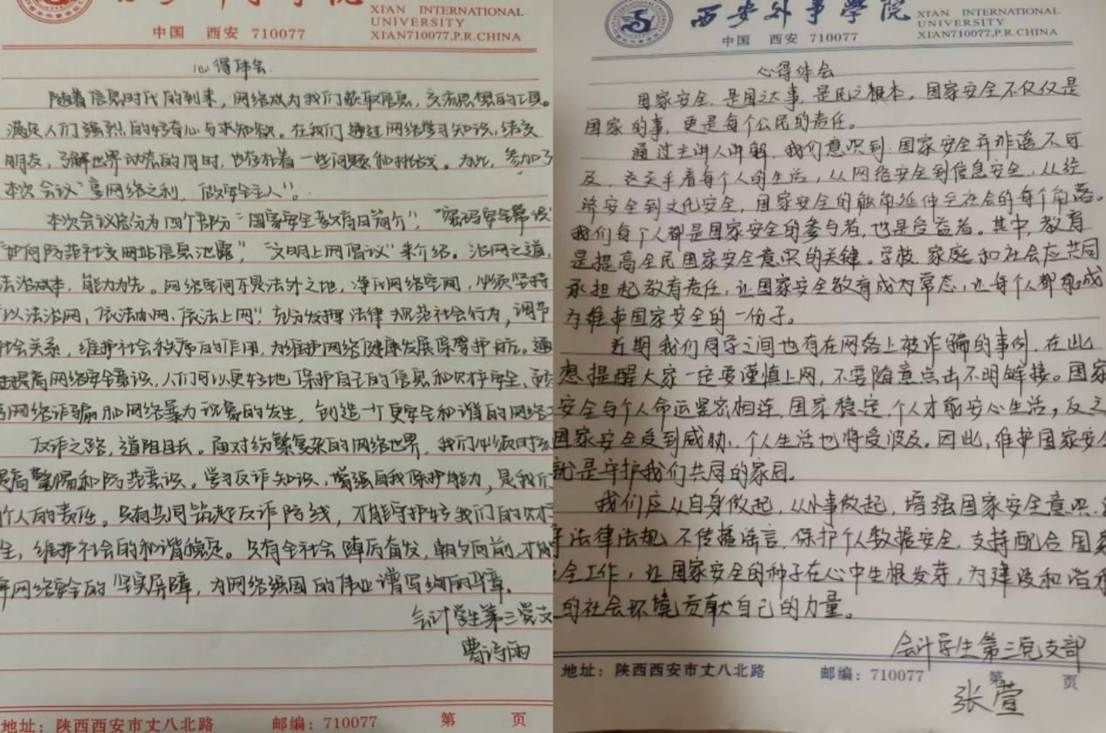 西安外事学院
XIAN INTERNATIONAL
UNIVERSITY
中国 西安 710077
XIAN710077,P.R.CHINA
心得体会
随着信息时代的到来，网络成为我们获取信息，交流思想的工具。
满足人们强烈的好奇心与求知欲。在我们通过网络学习知识、结交
朋友，了解世界动态的同时，也存在着一些问题和挑战。为此，参加了
本次会议“享网络之利，做安全主人”。
本次会议总分为四个部分“国家安全教育日简介”，“密码安全常识”
“如何防范社交网站信息泄露”，“文明上网倡议”来介绍。治网之道，
法治为本，能力为先。网络空间不是法外之地，净化网络空间，必须坚持
“以法治网、依法办网、依法上网”，充分发挥法律规范社会行为，调节
社会关系，维护社会秩序的作用，为维护网络健康发展保驾护航。通
过提高网络安全意识，人们可以更好地保护自己的信息和财产安全，
网络诈骗和网络暴力现象的发生，创造一个更安全和谐的网络
反诈之路，道阻且长。面对纷繁复杂的网络世界，我们必须时刻
提高警惕和防范意识。学习反诈知识，增强自我保护能力，是我们
个人的责任。只有共同筑起反诈防线，才能守护好我们的财产
维护社会的和谐稳定。只有全社会踔厉奋发，朝夕向前，才能
网络安全的坚实屏障，为网络强国的伟业谱写绚丽的华章。
会计学生第三党支
曹诗雨
地址：陕西西安市丈八北路 邮编：710077 第 页
西安外事學院
XIAN INTERNATIONAL
UNIVERSITY
中国 西安 710077
XIAN710077,P.R.CHINA
心得体会
国家安全，是国之大事，是民之根本。国家安全不仅仅是
国家的事，更是每个公民的责任。
通过主讲人讲解，我们意识到，国家安全并非遥不可
及，它关乎着每个人的生活，从网络安全到信息安全，从经
济安全到文化安全，国家安全的触角延伸至社会的每个角落。
我们每个人都是国家安全的参与者，也是受益者。其中，教育
是提高全民国家安全意识的关键。学校、家庭和社会应共同
承担起教育责任，让国家安全教育成为常态，让每个人都能成
为维护国家安全的一份子。
近期我们同学之间也有在网络上被诈骗的事例，在此
想提醒大家一定要谨慎上网，不要随意点击不明链接。国家
安全与个人命运紧密相连，国家稳定，个人才能安心生活，反之
国家安全受到威胁，个人生活也将受波及。因此，维护国家安全
就是守护我们共同的家园。
我们应从自身做起，从小事做起，增强国家安全意识，
法律法规，不传播谣言，保护个人数据安全，支持配合国家
安全工作，让国家安全的种子在心中生根发芽，为建设和谐
的社会环境贡献自己的力量。
会计学生第三党支部
张萱
地址：陕西西安市丈八北路 邮编：710077 第 页